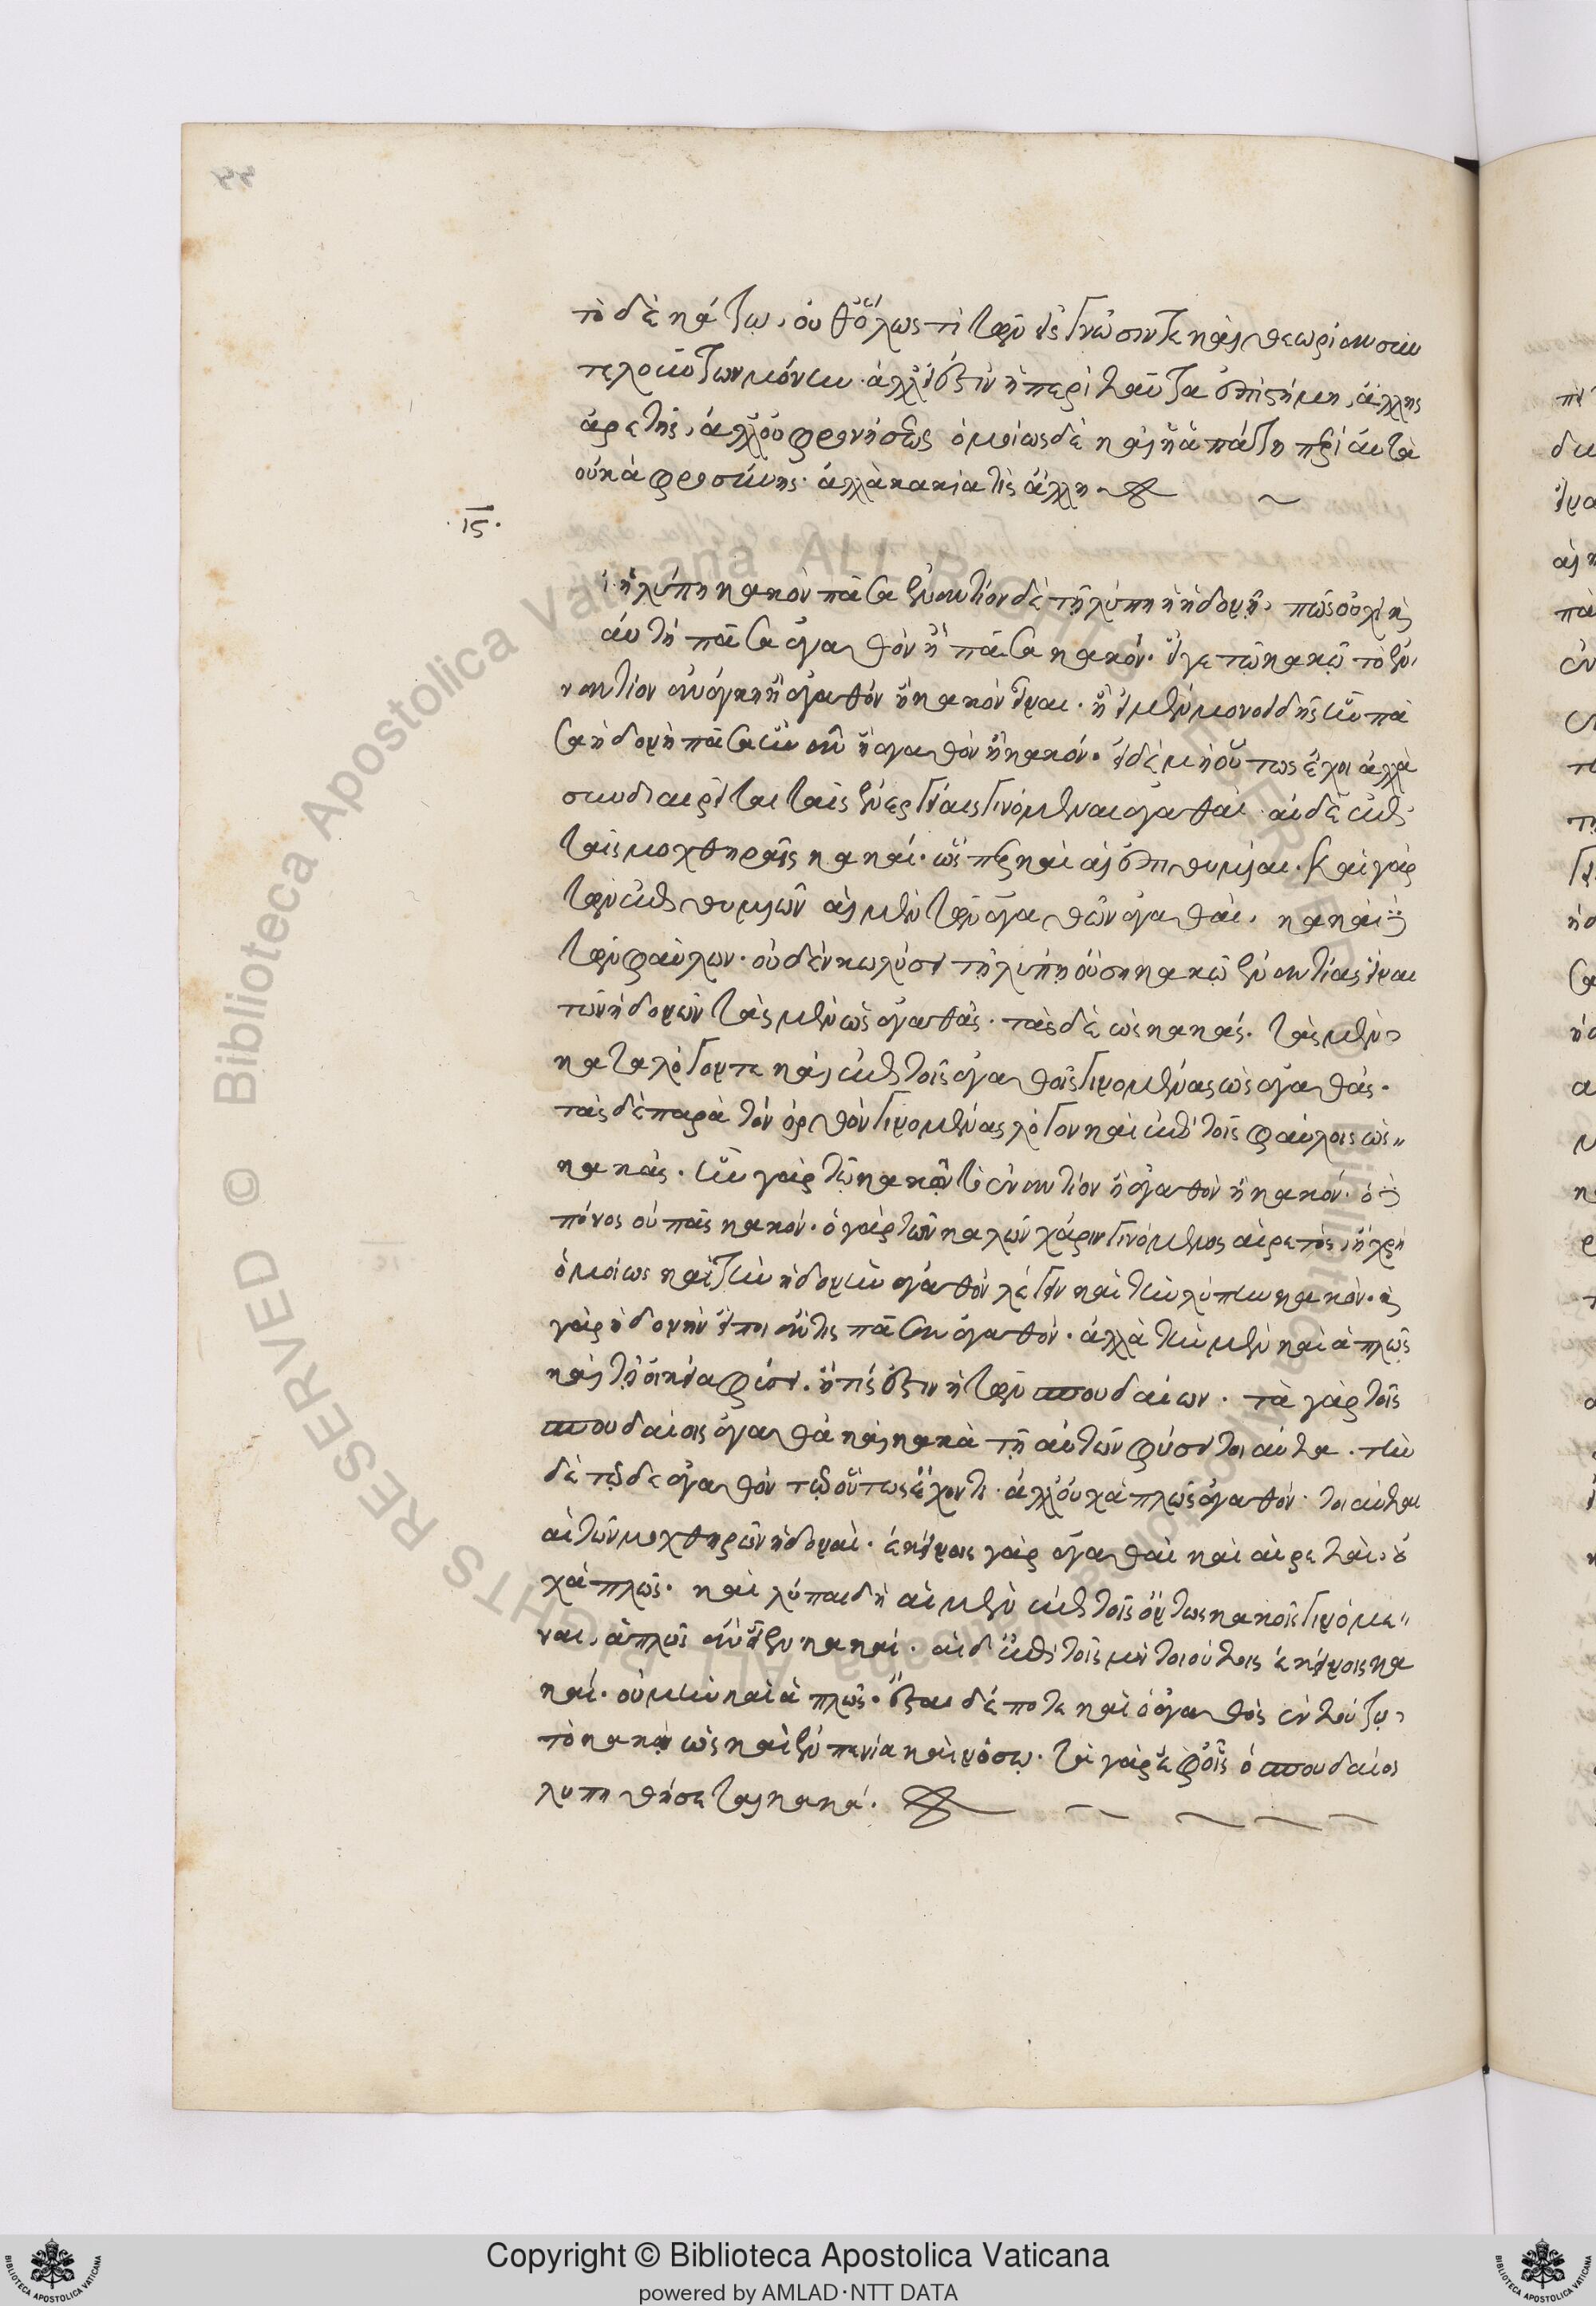 τὸ δὲ κάτω, οὐθ' ὅλως τι τῶν εἰς γνῶσιν τε καὶ θεωρίαν συν
τελούντων μόνην. ἀλλ' ἔστιν ἡ περὶ ταῦτα ἐπιστήμη, ἄλλης
ἀρετῆς, ἀλλ' οὐ φρονήσεως ὁμοίως δὲ καὶ ἡ ἀπάτη περὶ αὐτὰ
οὐκ ἀφροσύνης. ἀλλὰ κακία τις ἄλλη
·ις·
ἰ ἡ λύπη κακὸν πᾶσα ἐναντίον δὲ τῇ λύπῃ ἡ ἡδονή, πῶς οὐχὶ καὶ
αὐτὴ πᾶσα ἀγαθὸν ἢ πᾶσα κακόν. εἴ γε τῷ κακῷ τὸ ἐν
ναντίον ἀνάγκη ἢ ἀγαθὸν ἢ κακὸν εἶναι. ἢ εἰ μὲν μονοειδὴς ἦν πᾶ
σα ἡδονὴ πᾶσα ἦν ἂν ἢ ἀγαθὸν ἢ κακόν. εἰ δὲ μὴ οὕτως ἔχοι ἀλλὰ
συνδιαιρεῖται ταῖς ἐνεργείαις γινόμεναι ἀγαθαὶ αἱ δὲ ἐπὶ
ταῖς μοχθηραῖς κακαί. ὥσπερ καὶ αἱ ἐπιθυμίαι. καὶ γὰρ
τῶν ἐπιθυμιῶν αἱ μὲν τῶν ἀγαθῶν ἀγαθαὶ, κακαὶ δὲ
τῶν φαύλων. οὐδὲν κωλύσει τῇ λύπῃ οὔσῃ κακῷ ἐναντίας εἶναι
τῶν ἡδονῶν τὰς μὲν ὡς ἀγαθάς. τὰς δὲ ὡς κακάς. τὰς μὲν
κατὰ λόγον τε καὶ ἐπὶ τοῖς ἀγαθοῖς γινομένας ὡς ἀγαθάς.
τὰς δὲ παρὰ τὸν ὀρθὸν γινομένας λόγον καὶ ἐπὶ τοῖς φαύλοις ὡς
κακάς. ἦν γὰρ τῷ κακῷ τὸ ἐναντίον ἢ ἀγαθὸν ἢ κακόν. ὁ δὲ
πόνος οὐ πᾶς κακόν. ὁ γὰρ τῶν καλῶν χάριν γινόμενος αἱρετός, ἢ χρὴ
ὁμοίως καὶ τὴν ἡδονὴν ἀγαθὸν λέγειν καὶ τὴν λύπην κακόν. οὐ
γὰρ ἡδονὴν εἴποι ἄν τις πᾶσαν ἀγαθόν. ἀλλὰ τὴν μὲν καὶ ἁπλῶς
καὶ τῇ οἰκείᾳ φύσει. ἥτις ἐστιν ἡ τῶν σπουδαίων. τὰ γὰρ τοῖς
σπουδαίοις ἀγαθὰ καὶ κακὰ τῇ αὑτῶν φύσει τοιαῦτα. τὴν
δὲ τῷδε ἀγαθὸν τῷ οὕτως ἔχοντι. ἀλλ' οὐχ ἁπλῶς ἀγαθόν. τοιαῦται
αἱ τῶν μοχθηρῶν ἡδοναί. ἐκείνοις γὰρ ἀγαθαὶ καὶ αἱρεταὶ, οὐ
χ ἁπλῶς. καὶ λύπαι δὴ αἱ μὲν ἐπὶ τοῖς ὄντως κακοῖς γινόμε
ναι, ἁπλῶς ἂν εἶεν κακαί. αἱ δ' ἐπὶ τοῖς μὴ τοιούτοις ἐκείνοις κα
καί. οὐ μὴν καὶ ἁπλῶς. ἔσται δέ ποτε καὶ ὁ ἀγαθὸς ἐν τούτῳ
τὸ κακὸν ὡς καὶ ἐν πενίᾳ καὶ νόσῳ. τὰ γὰρ ἐφ' οἷς ὁ σπουδαῖος
λυπηθήσεται κακά.